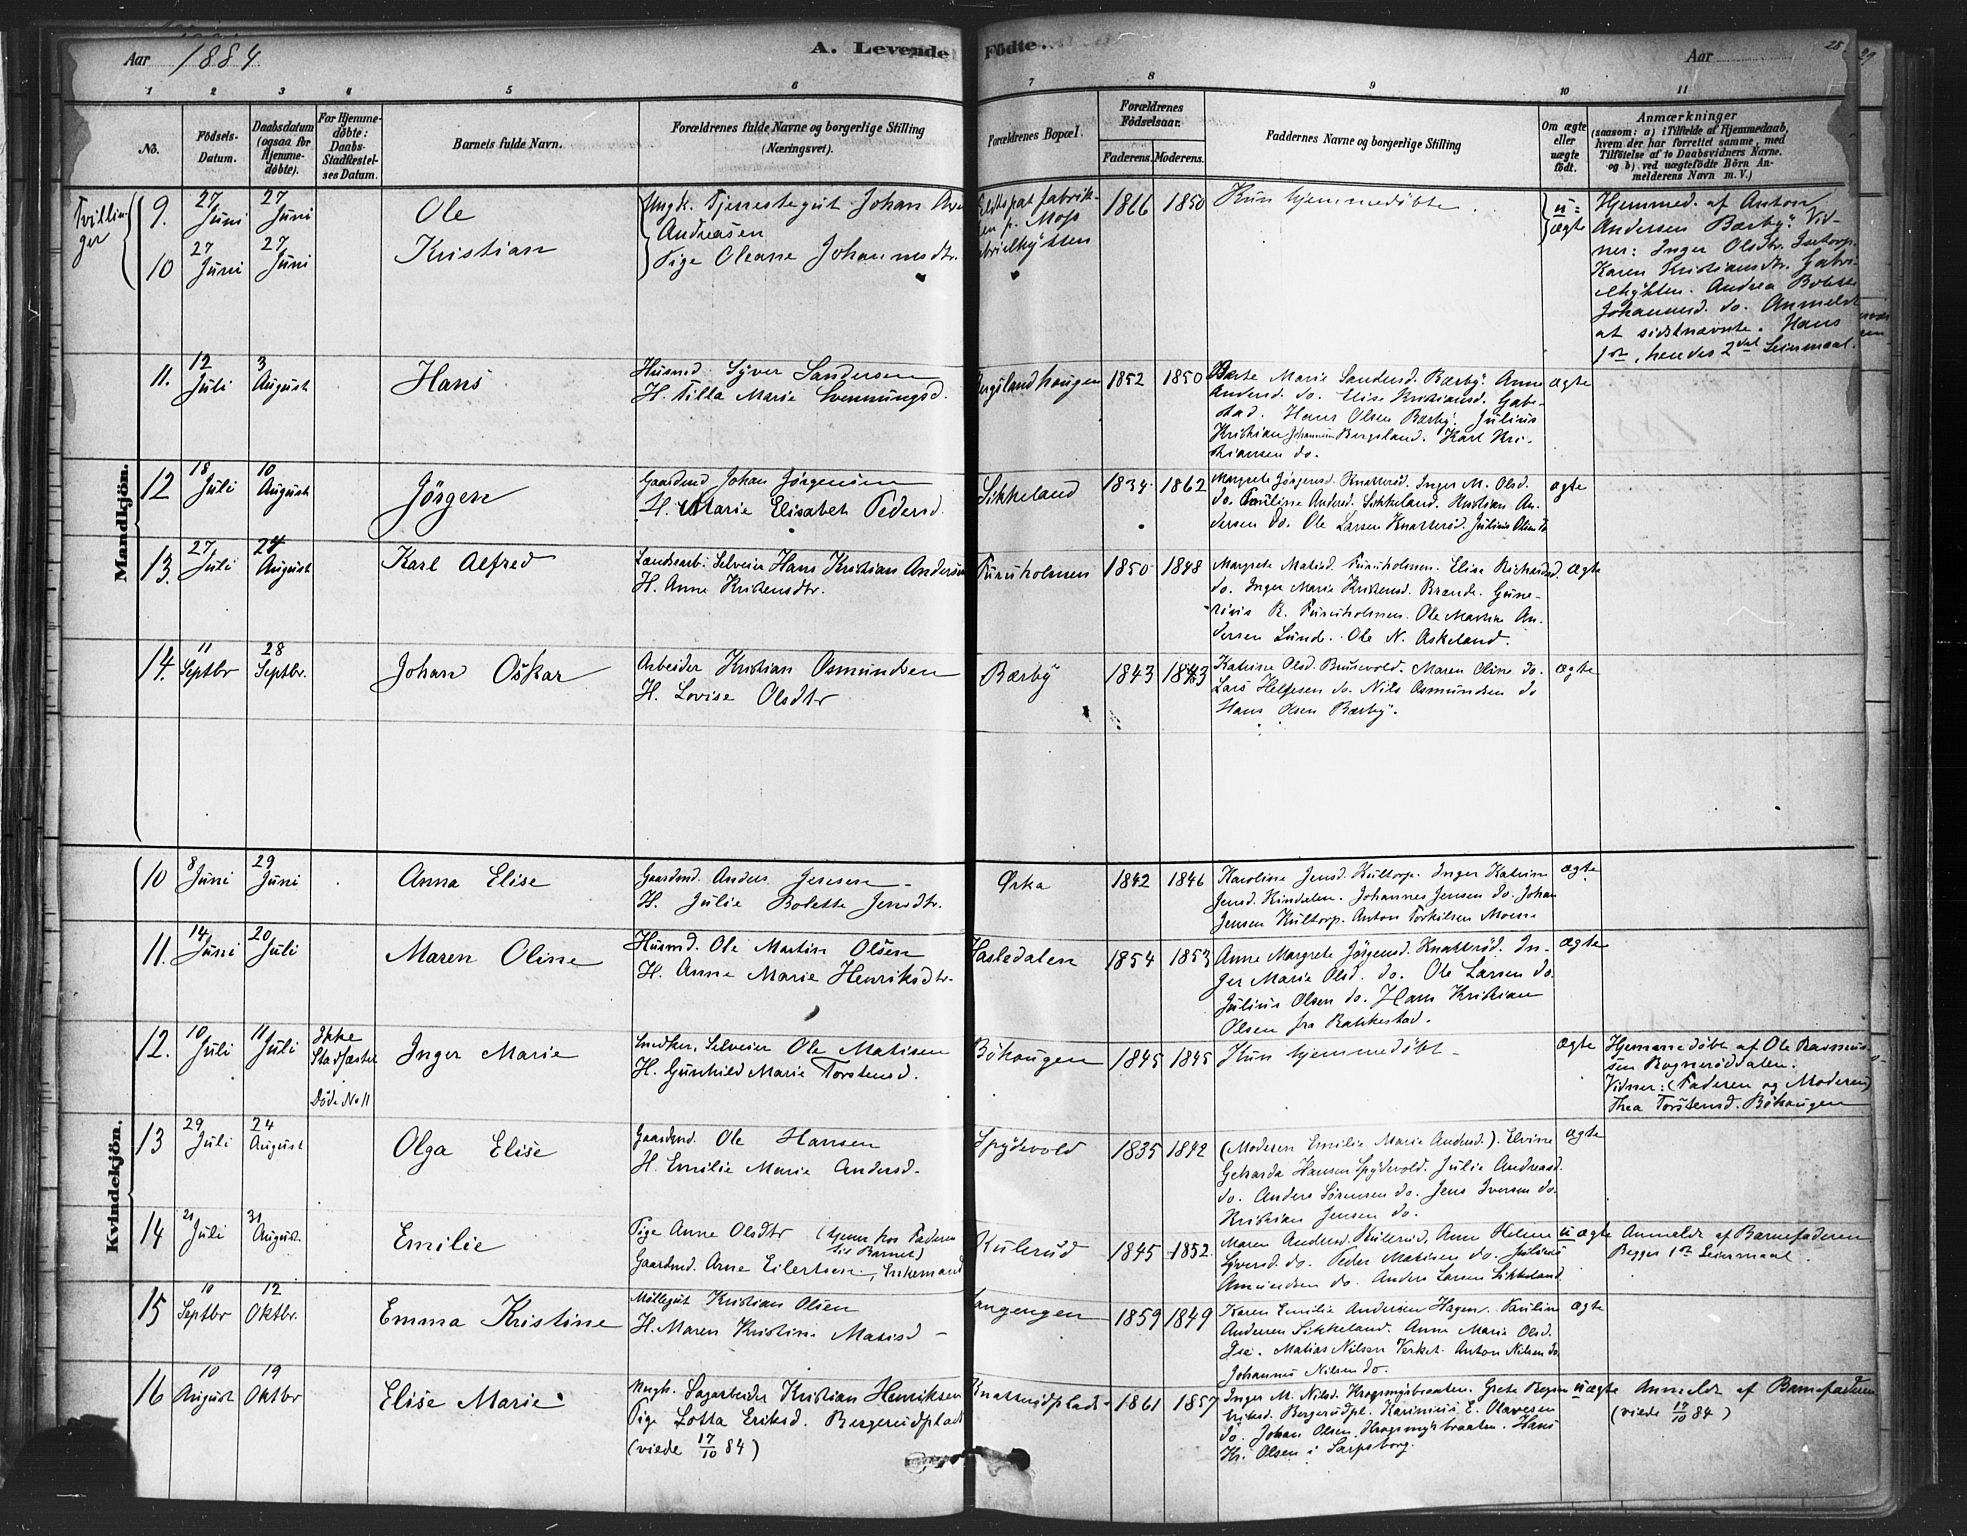 Aar 1884
A. Levende Födte.
Aar
25
29
1 2 3 4 5 6 7 8 9 10 11
No.
Födsels-Datum.
Daabsdatum (ogsaa for Hjemme-døbte).
For Hjemme-døbte: Daabs-Stadfæstel-ses Datum.
Barnets fulde Navn.
Forældrenes fulde Navne og borgerlige Stilling (Næringsvei).
Forældrenes Bopæl.
Forældrenes Födselsaar.
Faderens. Moderens.
Faddernes Navne og borgerlige Stilling
Om ægte eller uægte födt.
Anmærkninger
(saasom: a) i Tilfælde af Hjemmedaab, hvem der har forrettet samme, med Tilföielse af to Daabsvidners Navne. og b) ved uægtefödte Börn An-melderens Navn m. V.)
Mandkjön.
Tvillin-
ger
9. 27 Juni 27 Juni Ole
Ungk. Tjenestegut Johan
Andreasen
10 27 Juni 27 Juni Kristian
Pige Oleane Johannesdtr.
p. Moss
1866 1850 Kun hjemmedøbte.
u=
ægte
Hjemmed. af Anton
Andersen Bærby. Vid-
ner: Inger Olsdtr.
Karen Kristiansdtr. Gabri-
elhytten. Andrea Bolette
Johannesd. do. Anmeldt
af sidstnævnte. Hans
1ste, hendes 2det Leiermaal.
11. 12 Juli 3 August Hans
Husmd. Syver Sandersen
H. Tilla Marie Svenningsd.
Bergslandhaugen 1852 1850
Berte Marie Sandersd. Bærby. Anne
Andersd. do. Elise Kristiansd. Gabe-
stad. Hans Olsen Bærby. Julius
Kristian Johannesen Bergsland. Karl Kri-
stiansen do.
ægte
12 18 Juli 10 August Jørgen
Gaardmd. Johan Jørgensen
H. Marie Elisabet Pedersd.
Sikkeland 1834 1862
Margrete Jørgensd. Knatterød. Inger M. Olsd.
do. Pauline Andersd. Sikkeland. Kristian An-
dersen do. Ole Larsen Knatterød. Julius Olsen do
ægte
13. 27 Juli 24 August Karl Alfred
Landarb. Selveier Hans Kristian Andersen
H. Anne Kristensdtr.
Furuholmen 1850 1848
Margrete Matisd. Furuholmen. Elise Richardsd.
do. Inger Marie Kristensd. Brande. Gune-
rius R. Furuholmen. Ole Martin An-
dersen Lunde. Ole N. Askeland.
ægte
14. 11 Septbr 28 Septbr. Johan Oskar
Arbeider Kristian Osmundsen
H. Lovise Olsdtr
Bærby 1843 1843
Katrine Olsd. Brusevold. Maren Oline do.
Lars Helgesen do. Nils Osmundsen do
Hans Olsen Bærby.
ægte
Kvindekjön.
10 8 Juni 29 Juni Anna Elise
Gaardmd. Anders Jensen
H. Julie Bolette Jensdtr.
Ørka 1842 1846
Karoline Jensd. Kultorp. Inger Katrine
Jensd. Kindalen. Johannes Jensen do. Johan
Jensen Kultorp. Anton Torkilsen Moen
ægte
11. 14 Juni 20 Juli Maren Oline
Husmd. Ole Martin Olsen
H. Anne Marie Henriksdtr.
Hasledalen 1854 1853
Anne Margrete Jørgensd. Knatterød. In-
ger Marie Olsd. do. Ole Larsen do.
Julius Olsen do. Hans Kristian
Olsen fra Rakkestad.
ægte
12. 10 Juli 11 Juli Ikke
Stadfæstet
Døde No 11
Inger Marie
Snedker, Selveier Ole Matisen
H. Gunhild Marie Torstensd.
Böhaugen 1845 1845 Kun hjemmedøbt
ægte
Hjemmedøbt af Ole Rasmus-
sen Rognerøddalen.
Vidner: (Faderen og Moderen)
Thea Torstensd. Böhaugen
13 29 Juli 24 August Olga Elise
Gaardmd. Ole Hansen
H. Emilie Marie Andersd.
Spydevold 1835 1842
(Moderen Emilie Marie Andersd.). Elvine
Geharda Hansen Spydevold. Julie Andreasd.
do. Anders Sørensen do. Jens Iversen do.
Kristian Jensen do.
ægte
14 21 Juli 31 August. Emilie
Pige Anne Olsdtr (tjener hos Faderen
til Barnet)
Gaardmd. Arne Eilertsen, Enkemand
Kulerud 1845 1852.
Maren Andersd. Kulerud. Anne Helene
Syversd. do. Peder Matisen do. Julius
Amundsen do. Anders Larsen Sikkeland
uægte
Anmeldt af Barnefaderen
Begges 1ste Leiermaal.
15 10 Septbr 12 Oktbr. Emma Kristine
Møllegut Kristian Olsen
H. Maren Kristine Matisd
Langengen 1859 1849
Karen Emilie Andersen Hagen. Pauline
Andersen Sikkeland. Anne Marie Olsd.
Matias Nilsen Verket. Anton Nilsen do.
Johannes Nilsen do.
ægte
16 10 August 19 Oktbr Elise Marie
Ungk. Sagarbeider Kristian Henriksen
Pige Lotta Eriksd. Bergerudplads
(viede 17/10 84)
Knatterødplads 1861 1857
Inger M. Nilsd. Krogsmyrbraaten. Grete
Eriksd. Bergerudpl. Karinius E. Olavesen
do. Johan Olsen Krogsmyrbraaten. Hans
Kr. Olsen i Sarpsborg.
uægte
Anmeldt af Barnefaderen
(viede 17/10 84)